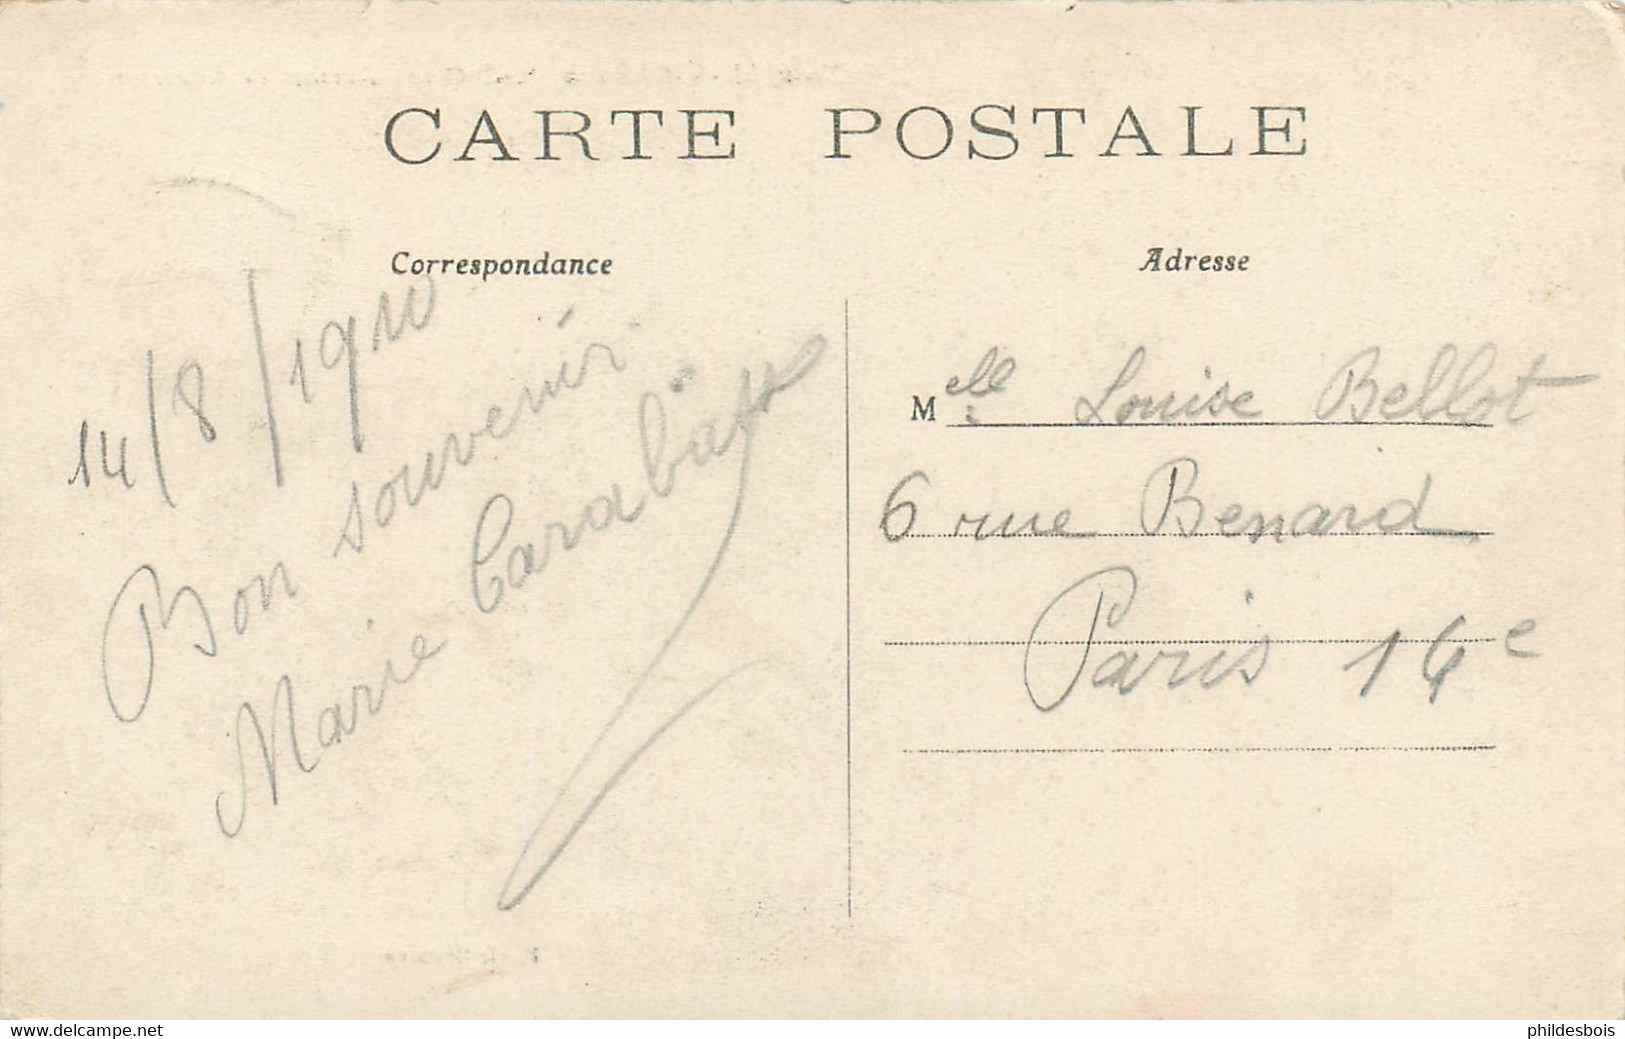 CARTE POSTALE
Correspondance
14/8/1910
Bon souvenir
Marie
Adresse
Melle Louise Bellot
6 rue Benard
Paris 14e
www.delcampe.net
phildesbois